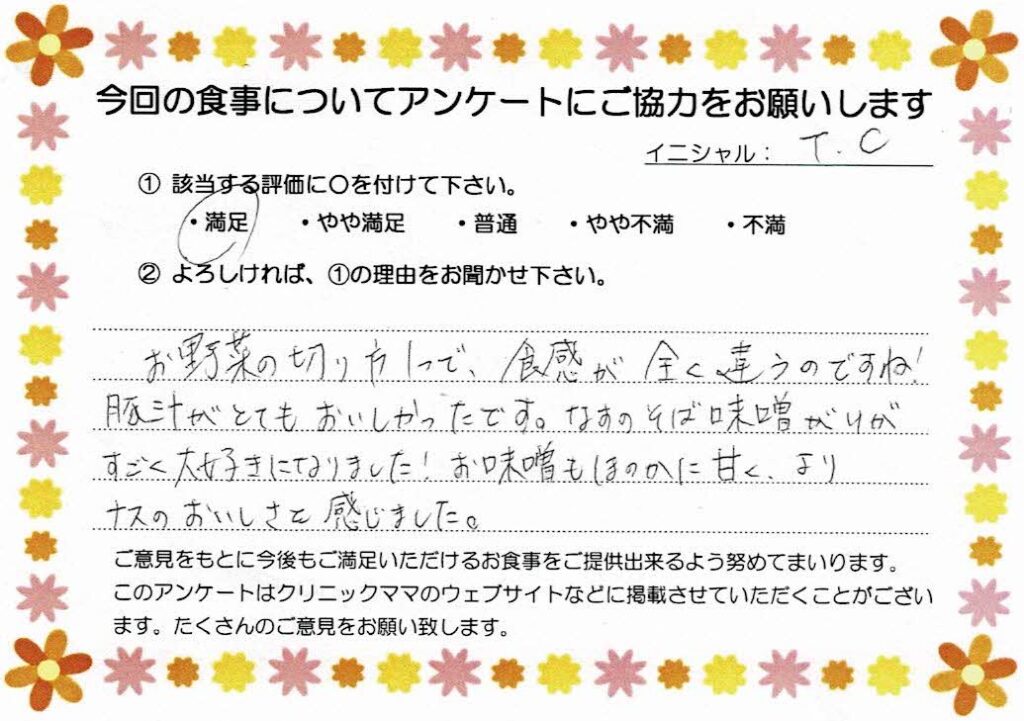 今回の食事についてアンケートにご協力をお願いします
イニシャル： T.C
① 該当する評価に〇を付けて下さい。
・満足 ・やや満足 ・普通 ・やや不満 ・不満
② よろしければ、①の理由をお聞かせ下さい。
お野菜の切り方1つで、食感が全く違うのですね!
豚汁がとてもおいしかったです。なすのそば味噌がけが
すごく大好きになりました! お味噌もほのかに甘く、より
ナスのおいしさを感じました。
ご意見をもとに今後もご満足いただけるお食事をご提供出来るよう努めてまいります。
このアンケートはクリニックママのウェブサイトなどに掲載させていただくことがござい
ます。たくさんのご意見をお願い致します。